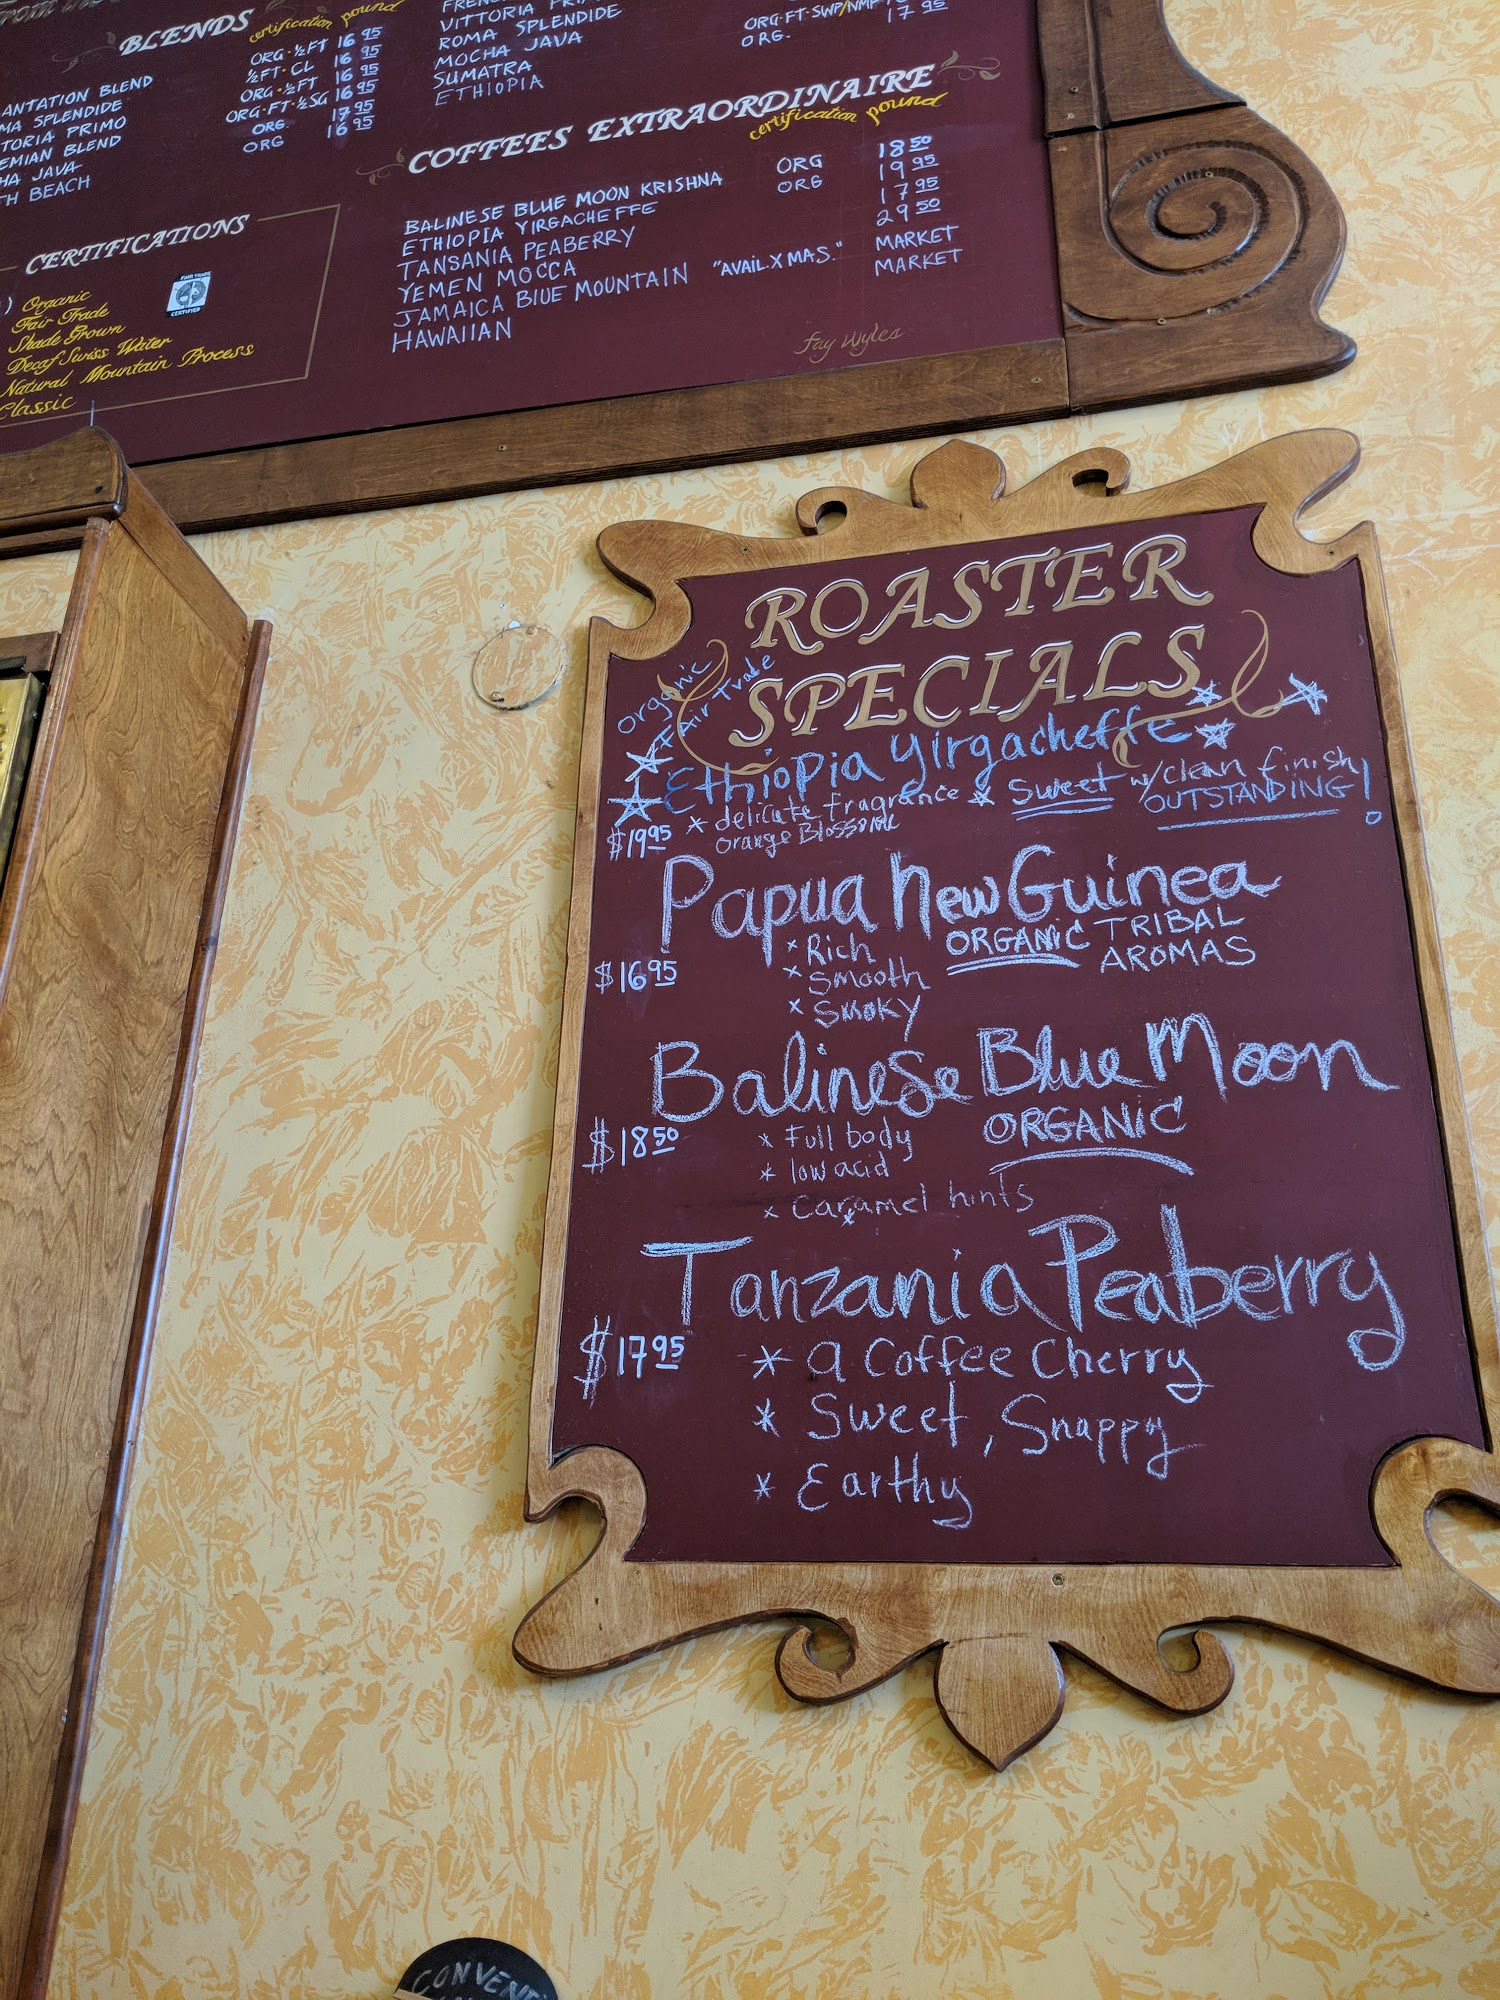 BLENDS
certification pound
ORG·½FT 16 95
½FT·CL 16 95
BLEND ORG·½FT 16 95
SPLENDIDE ORG·FT·½SG 16 95
PRIMO ORG. 17 95
BLEND ORG 16 95
JAVA
BEACH
CERTIFICATIONS
Organic
Fair Trade
Shade Grown
Decaf Swiss Water
Natural Mountain Process
Classic
FAIR TRADE
CERTIFIED
VITTORIA
ROMA SPLENDIDE
MOCHA JAVA
SUMATRA
ETHIOPIA
17 95
ORG.
COFFEES EXTRAORDINAIRE
certification pound
BALINESE BLUE MOON KRISHNA ORG 18 50
ETHIOPIA YIRGACHEFFE ORG 19 95
TANSANIA PEABERRY 17 95
YEMEN MOCCA 29 50
JAMAICA BLUE MOUNTAIN "AVAIL. XMAS." MARKET
HAWAIIAN MARKET
Fay Wyles
ROASTER
SPECIALS
Organic
Fair Trade
Ethiopia Yirgacheffe
$19 95 * delicate fragrance * Sweet w/clean finish
Orange Blossome OUTSTANDING!
Papua New Guinea
$16 95 * Rich ORGANIC TRIBAL
* Smooth AROMAS
* Smoky
Balinese Blue Moon
$18 50 * Full body ORGANIC
* low acid
* Caramel hints
Tanzania Peaberry
$17 95 * a Coffee Cherry
* Sweet, Snappy
* Earthy